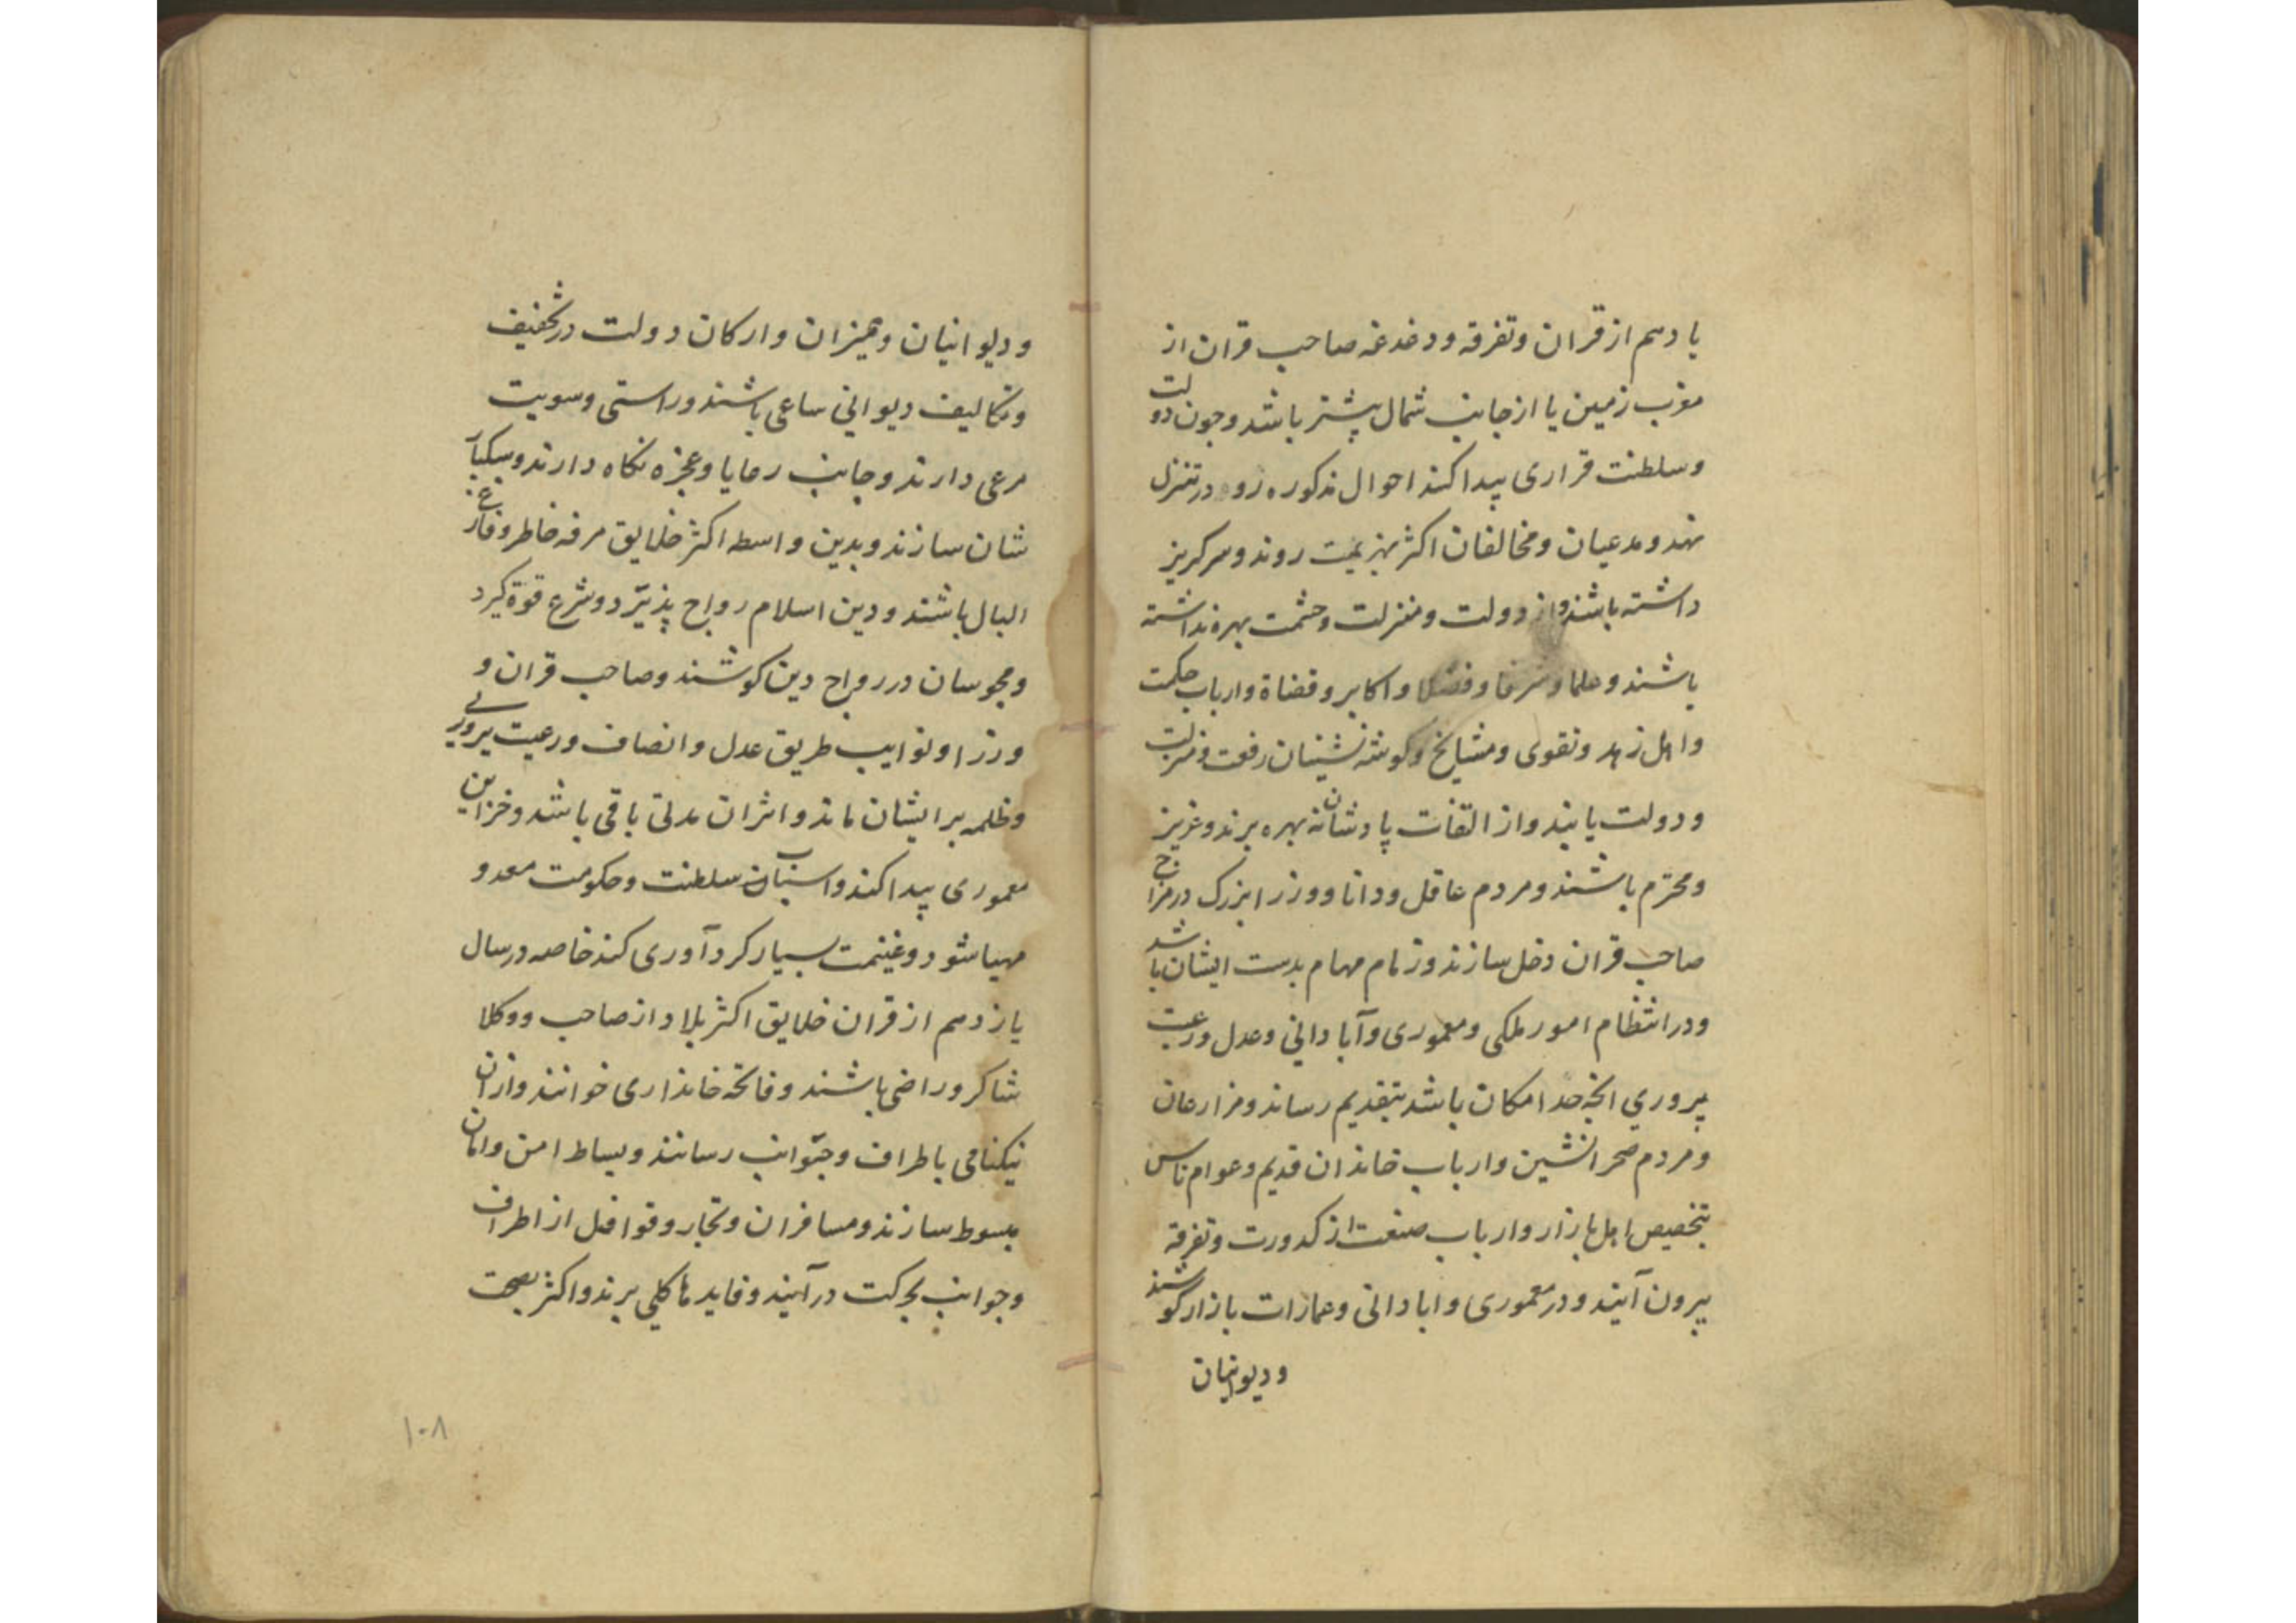 یا دهم از قران و تفرقه و دغدغه صاحب قران از
مغرب زمین یا از جانب شمال پیشتر باشد و چون دولت
و سلطنت قراری پیدا کند احوال مذکوره رود در تنزل
نهد و مدعیان و مخالفان اکثر بهزیمت روند و سر کریز
داشته باشند و از دولت و منزلت و حشمت بهره نداشته
باشند و علما و شرفا و فضلا و اکابر و قضاة و ارباب حکمت
و اهل زهد و تقوی و مشایخ و کوشه نشینان رفعت و منزلت
و دولت یابند و از التفات پادشاهانه بهره برند و عزیز
و محترم باشند و مردم عاقل و دانا و وزرا بزرک در مزاج
صاحب قران دخل سازند و زمام مهام بدست ایشان باشد
و در انتظام امور ملکی و معموری و آبادانی و عدل و رعیت
پروری انچه حد امکان باشد بتقدیم رساند و مزارعان
و مردم صحرا نشین و ارباب خاندان قدیم و عوام ناس
بتخصیص اهل بازار و ارباب صنعت از کدورت و تفرقه
بیرون آیند و در معموری و ابادانی و عمارات بازار کوشند
و دیوانیان
و دیوانیان و ممیزان و ارکان دولت در تخفیف
و تکالیف دیوانی ساعی باشند و راستی و سویت
مرعی دارند و جانب رعایا و عجزه نکاه دارند و سبکبار
شان سازند و بدین واسطه اکثر خلایق مرفه خاطر و فارغ
البال باشند و دین اسلام رواج پذیرد و شرع قوة کیرد
و مجوسان در رواج دین کوشند و صاحب قران و
وزرا و نوایب طریق عدل و انصاف و رعیت پروری
و ظلمه بر ایشان ماند و اثر ان مدتی باقی باشد و خزاین
معموری پیدا کند و اسباب سلطنت و حکومت معد و
مهیا شود و غنیمت بسیار کرد آوری کند خاصه در سال
یازدهم از قران خلایق اکثر بلاد از صاحب و وکلا
شاکر و راضی باشند و فاتحه خانداری خوانند و از ان
نیکنامی باطراف و جوانب رسانند و بساط امن و امان
مبسوط سازند و مسافران و تجار و قوافل از اطراف
و جوانب بحرکت در آیند و فایدها کلی برند و اکثر بصحت
۱۰۸